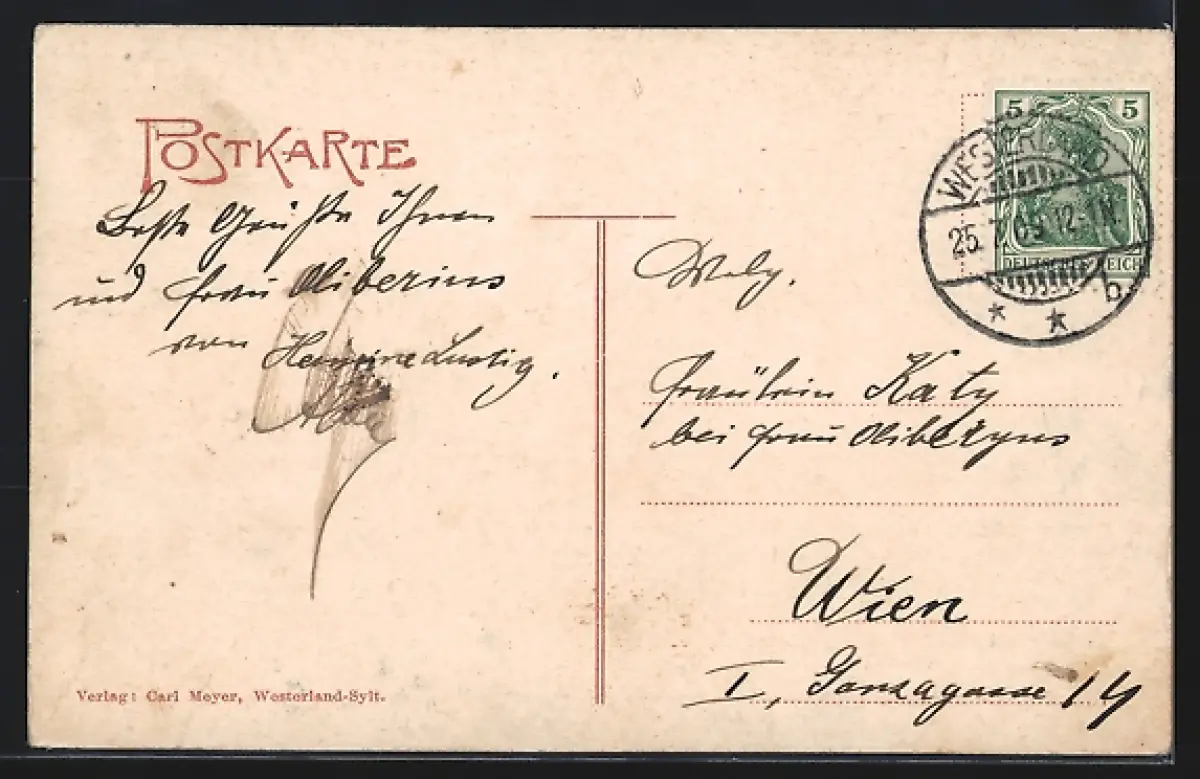 POSTKARTE
Beste Grüße Ihnen
und Frau Oliberius
von Hermine Lustig.
5 5
WESTERLAND
25. 7. 09. 12-1N.
DEUTSCHES REICH
* * b.
Fräulein Katy
bei Frau Oliberyus
Wien
I, Gonzagasse 14
Verlag: Carl Meyer, Westerland-Sylt.